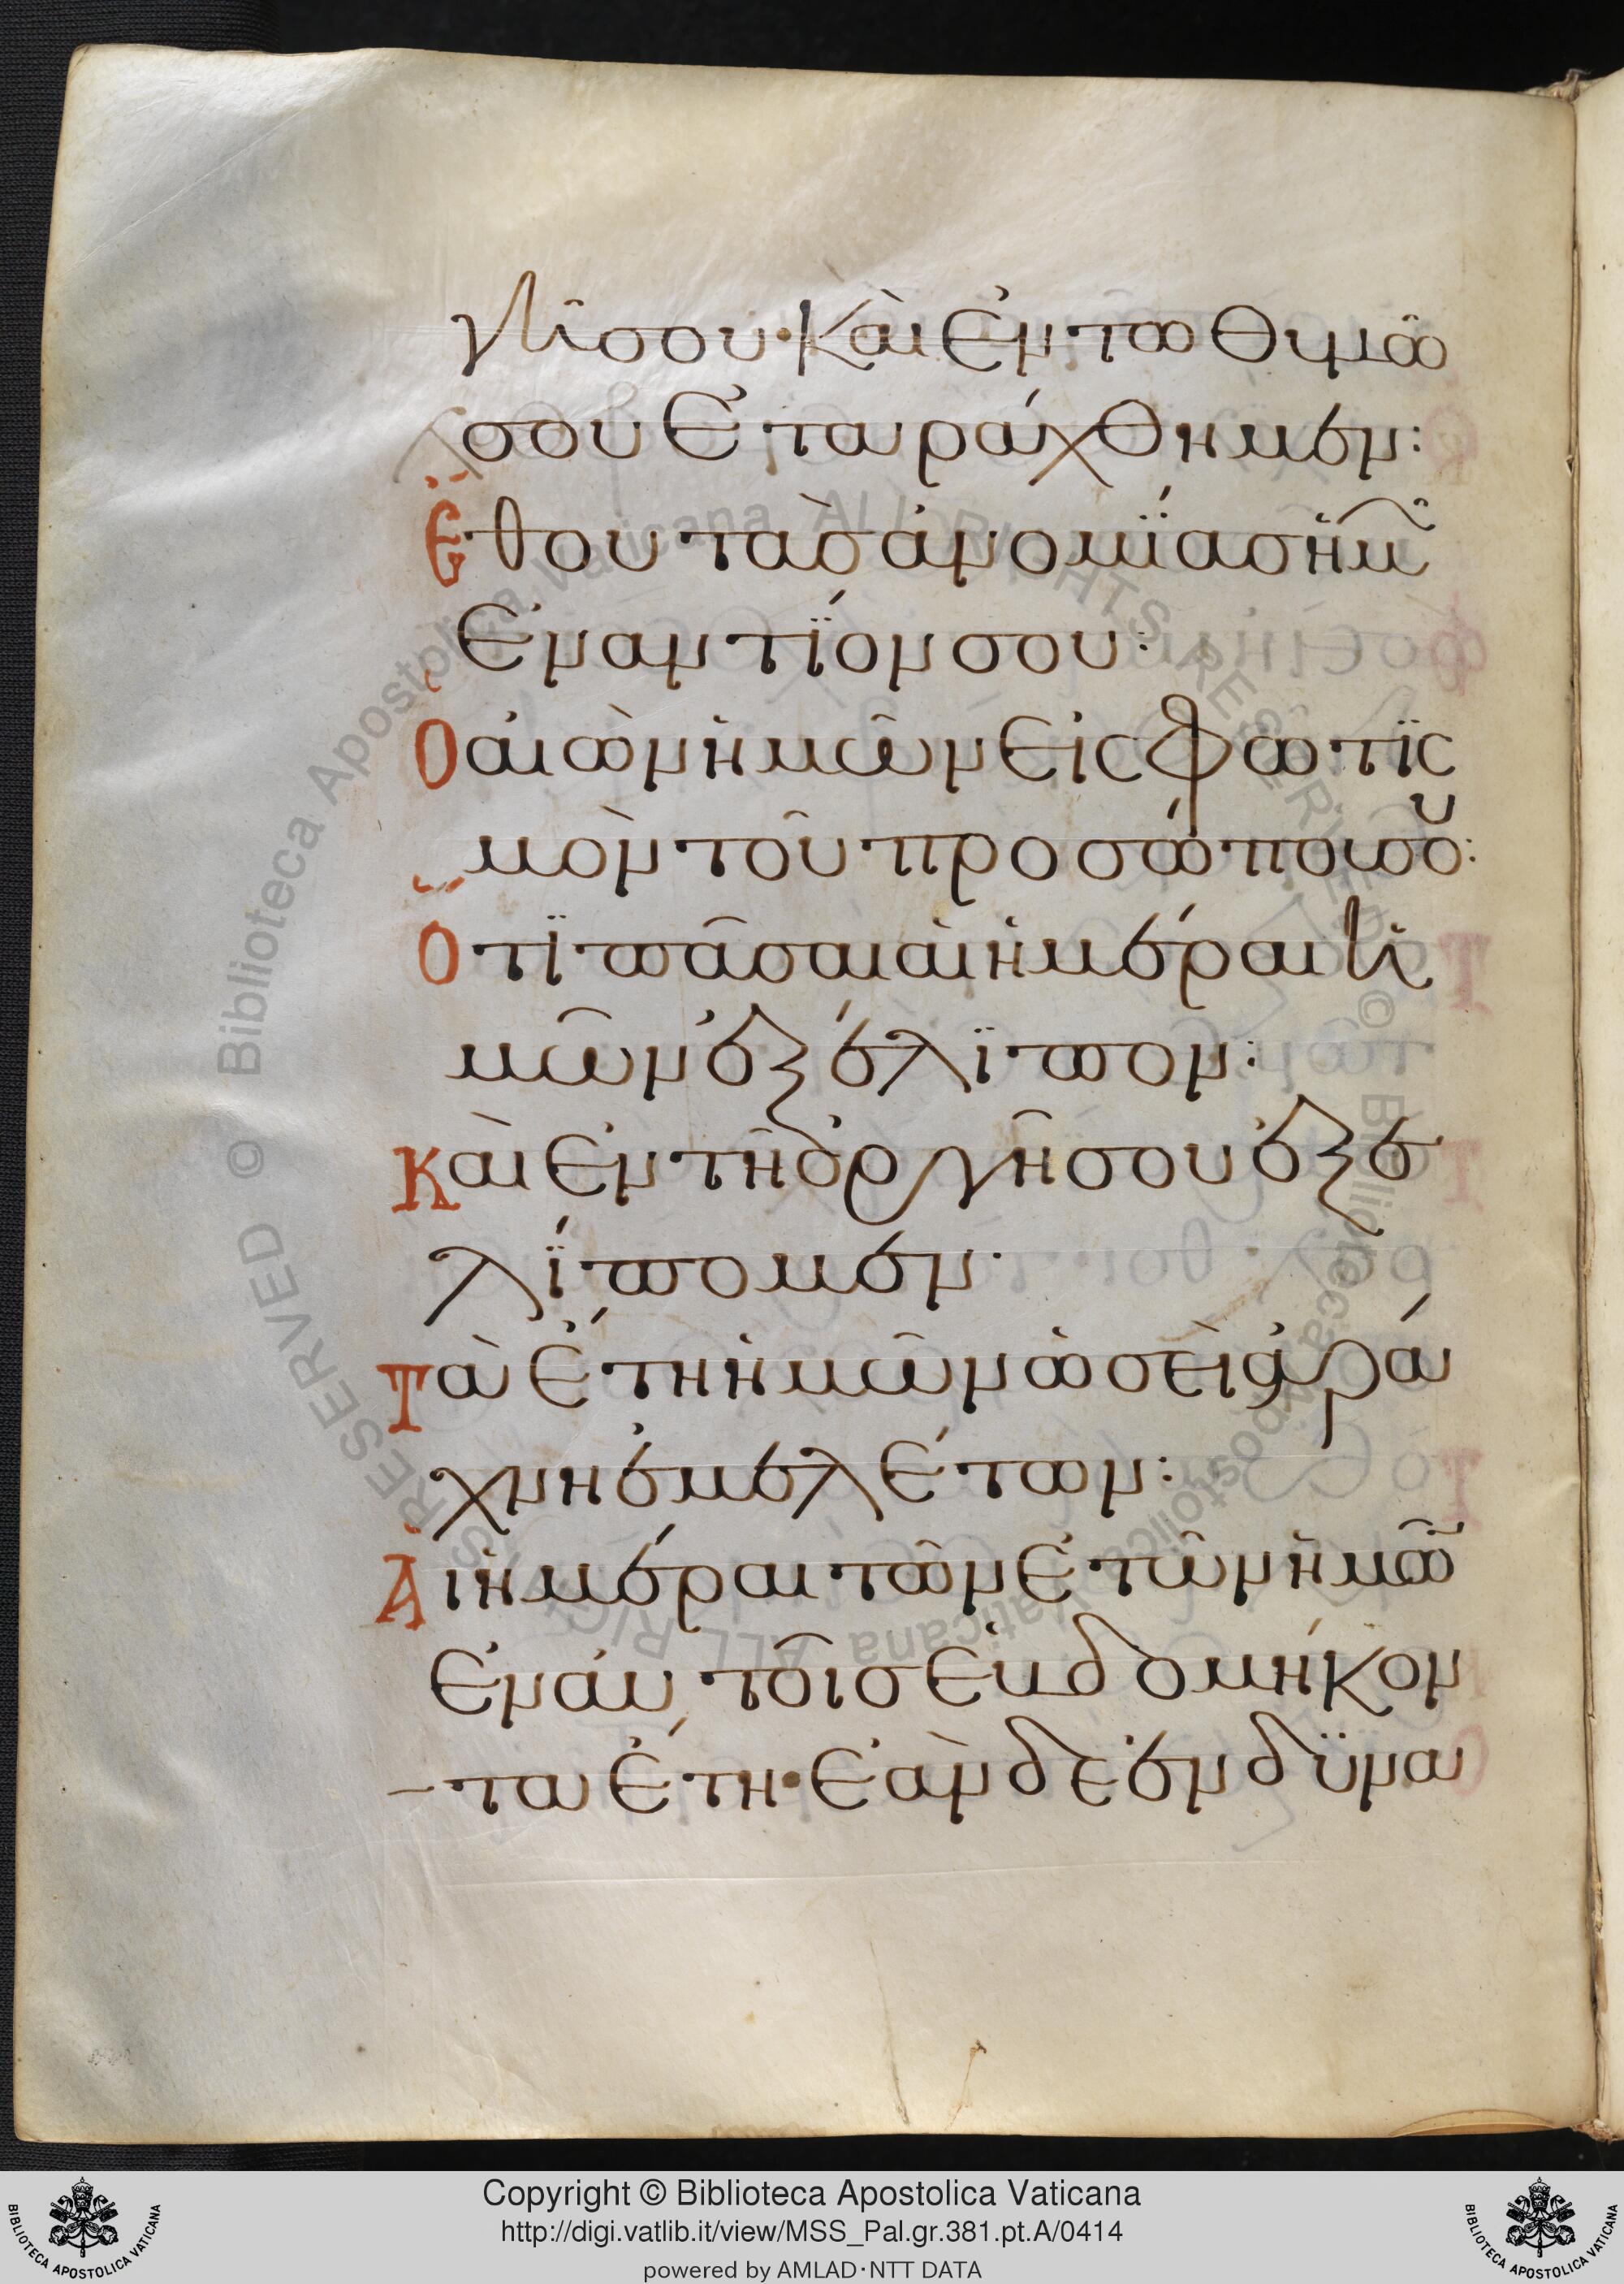 γῆ σου· καὶ ἐν τω θυμῶ
σου ἐταράχθημεν:
Ἔθου τὰσ ἀνομΐασ ἡμῶ
ἐναντΐον σου:
Ὁ αἰὼν ἡμῶν εἰς φωτϊς
μὸν τοῦ προσώπου σου:
Ὅτϊ πᾶσαι αἱ ἡμέραι ἡ
μῶν ἐξέλϊπον:
Καὶ ἐν τῆ ὀργῆ σου ἐξε
λΐπομεν·
Τὰ ἔτη ἡμῶν ὡσεὶ ἀρά
χνη ἐμελέτων:
Αἱ ἡμέραι τῶν ἐτῶν ἡμῶν
ἐν αυτοῖσ ἑβδομήκον
τα ἔτη· ἐὰν δε ἐν δϋνα
Copyright © Biblioteca Apostolica Vaticana
http://digi.vatlib.it/view/MSS_Pal.gr.381.pt.A/0414
powered by AMLAD·NTT DATA
BIBLIOTECA APOSTOLICA VATICANA
BIBLIOTECA APOSTOLICA VATICANA
© Biblioteca Apostolica Vaticana ALL RIGHTS RESERVED
© Biblioteca Apostolica Vaticana ALL RIGHTS RESERVED